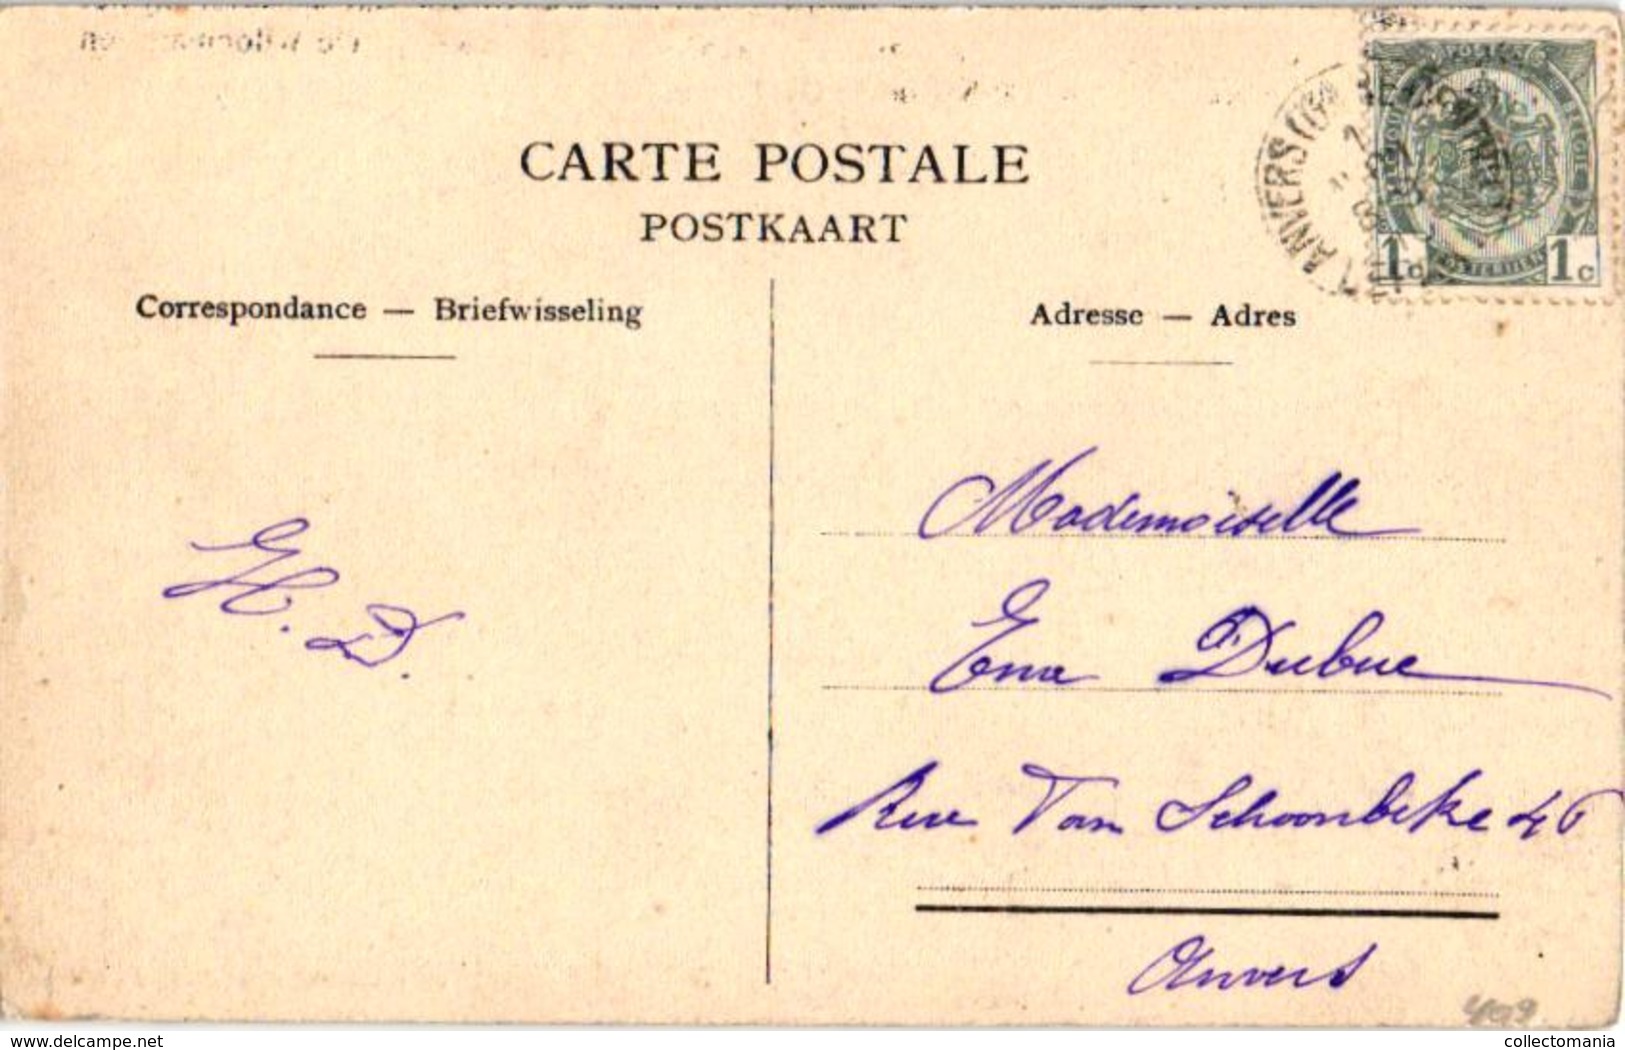 CARTE POSTALE
POSTKAART
Correspondance — Briefwisseling
Adresse — Adres
POSTES
BELGIQUE
BELGIE
1c 1c
ANVERS
H. D.
Mademoiselle
Ema Dubuc
Rue Van Schoonbeke 46
Anvers
499
delcampe.net
collectomania